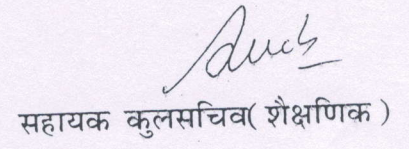 सहायक कुलसचिव( शैक्षणिक )